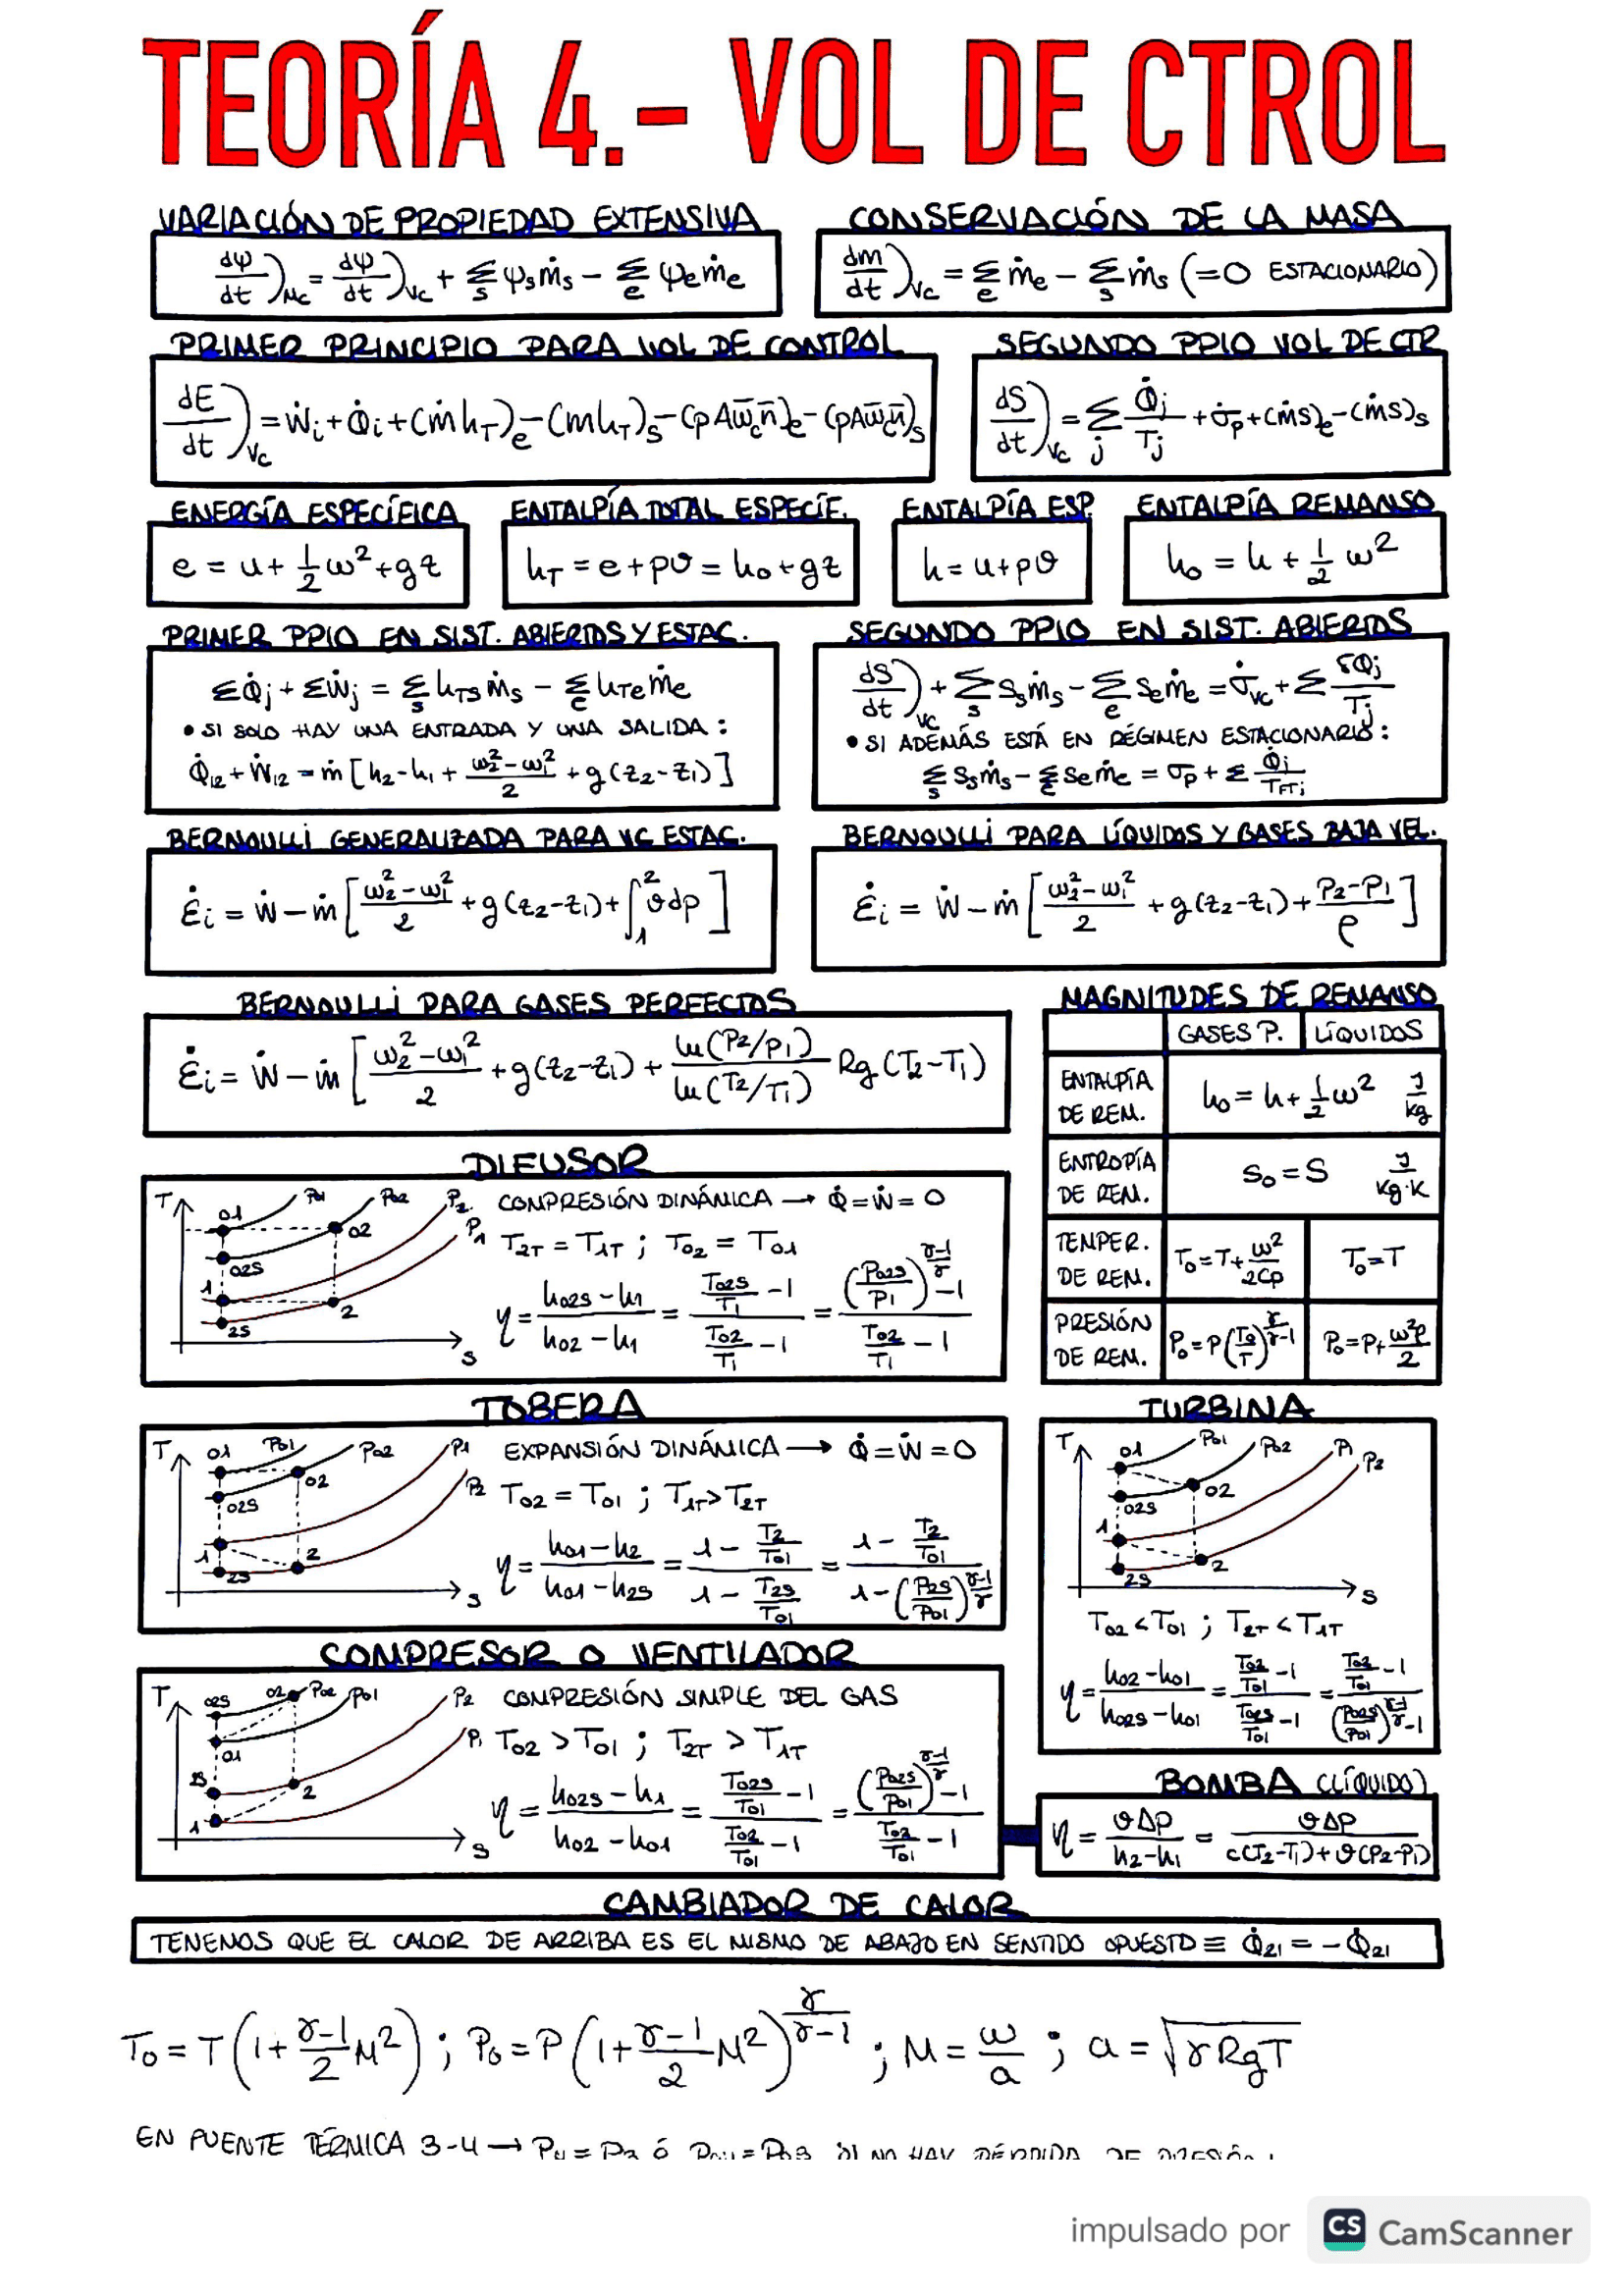 TEORÍA 4.- VOL DE CTROL
VARIACIÓN DE PROPIEDAD EXTENSIVA
dψ/dt)Mc = dψ/dt)Vc + Σs ψsṁs − Σe ψeṁe
CONSERVACIÓN DE LA MASA
dm/dt)Vc = Σe ṁe − Σs ṁs (=0 ESTACIONARIO)
PRIMER PRINCIPIO PARA VOL DE CONTROL
dE/dt)Vc = Ẇi + Q̇i + (ṁhT)e − (ṁhT)s − (pAw̄cn̄)e − (pAw̄cn̄)s
SEGUNDO PPIO VOL DE CTR
dS/dt)Vc = Σj Q̇j/Tj + σ̇p + (ṁs)e − (ṁs)s
ENERGÍA ESPECÍFICA
e = u + 1/2 ω² + gz
ENTALPÍA TOTAL ESPECÍF.
hT = e + pv = ho + gz
ENTALPÍA ESP.
h = u + pv
ENTALPÍA REMANSO
ho = h + 1/2 ω²
PRIMER PPIO EN SIST. ABIERTOS Y ESTAC.
ΣQ̇j + ΣẆj = Σs hTsṁs − Σe hTeṁe
• SI SOLO HAY UNA ENTRADA Y UNA SALIDA:
Q̇12 + Ẇ12 = ṁ[h2 − h1 + (ω2² − ω1²)/2 + g(z2 − z1)]
SEGUNDO PPIO EN SIST. ABIERTOS
dS/dt)VC + Σs Ssṁs − Σe Seṁe = σ̇vc + Σ δQj/Tj
• SI ADEMÁS ESTÁ EN RÉGIMEN ESTACIONARIO:
Σs Ssṁs − Σe Seṁe = σp + Σ Q̇j/TFTj
BERNOULLI GENERALIZADA PARA VC ESTAC.
Ėi = Ẇ − ṁ[(ω2² − ω1²)/2 + g(z2 − z1) + ∫₁² vdp]
BERNOULLI PARA LÍQUIDOS Y GASES BAJA VEL.
Ėi = Ẇ − ṁ[(ω2² − ω1²)/2 + g(z2 − z1) + (P2 − P1)/ρ]
BERNOULLI PARA GASES PERFECTOS
Ėi = Ẇ − ṁ[(ω2² − ω1²)/2 + g(z2 − z1) + ln(P2/P1)/ln(T2/T1) Rg(T2 − T1)
MAGNITUDES DE REMANSO
GASES P. LÍQUIDOS
ENTALPÍA DE REM. ho = h + 1/2 ω² J/kg
ENTROPÍA DE REM. So = S J/kg·K
TEMPER. DE REM. To = T + ω²/2Cp To = T
PRESIÓN DE REM. Po = P(To/T)^(γ/γ−1) Po = P + ω²ρ/2
DIFUSOR
T 01 P01 P02 P2 P1 02 02S 1 2 2S S
COMPRESIÓN DINÁMICA → Q̇ = Ẇ = 0
T2T = T1T ; T02 = T01
η = (h02s − h1)/(h02 − h1) = (T02s/T1 − 1)/(T02/T1 − 1) = ((P02s/P1)^(γ−1/γ) − 1)/(T02/T1 − 1)
TOBERA
T 01 P01 P02 P1 P2 02 02S 1 2 2S S
EXPANSIÓN DINÁMICA → Q̇ = Ẇ = 0
T02 = T01 ; T1T > T2T
η = (h01 − h2)/(h01 − h2s) = (1 − T2/T01)/(1 − T2s/T01) = (1 − T2/T01)/(1 − (P2s/P01)^(γ−1/γ))
TURBINA
T 01 P01 P02 P1 P2 02 02S 1 2 2S S
T02 < T01 ; T2T < T1T
η = (h02 − h01)/(h02s − h01) = (T02/T01 − 1)/(T02s/T01 − 1) = (T02/T01 − 1)/((P02s/P01)^(γ−1/γ) − 1)
COMPRESOR O VENTILADOR
T 02S 02 P02 P01 P2 P1 01 2S 2 1 S
COMPRESIÓN SIMPLE DEL GAS
T02 > T01 ; T2T > T1T
η = (h02s − h1)/(h02 − h01) = (T02s/T01 − 1)/(T02/T01 − 1) = ((P02s/P01)^(γ−1/γ) − 1)/(T02/T01 − 1)
BOMBA (LÍQUIDO)
η = vΔP/(h2 − h1) = vΔP/(c(T2 − T1) + v(P2 − P1))
CAMBIADOR DE CALOR
TENEMOS QUE EL CALOR DE ARRIBA ES EL MISMO DE ABAJO EN SENTIDO OPUESTO ≡ Q̇21 = −Q̇21
To = T(1 + (γ−1)/2 M²) ; Po = P(1 + (γ−1)/2 M²)^(γ/γ−1) ; M = ω/a ; a = √γRgT
EN FUENTE TÉRMICA 3-4 → P4 = P3 ó P04 = P03 SI NO HAY PÉRDIDA DE PRESIÓN
impulsado por CS CamScanner